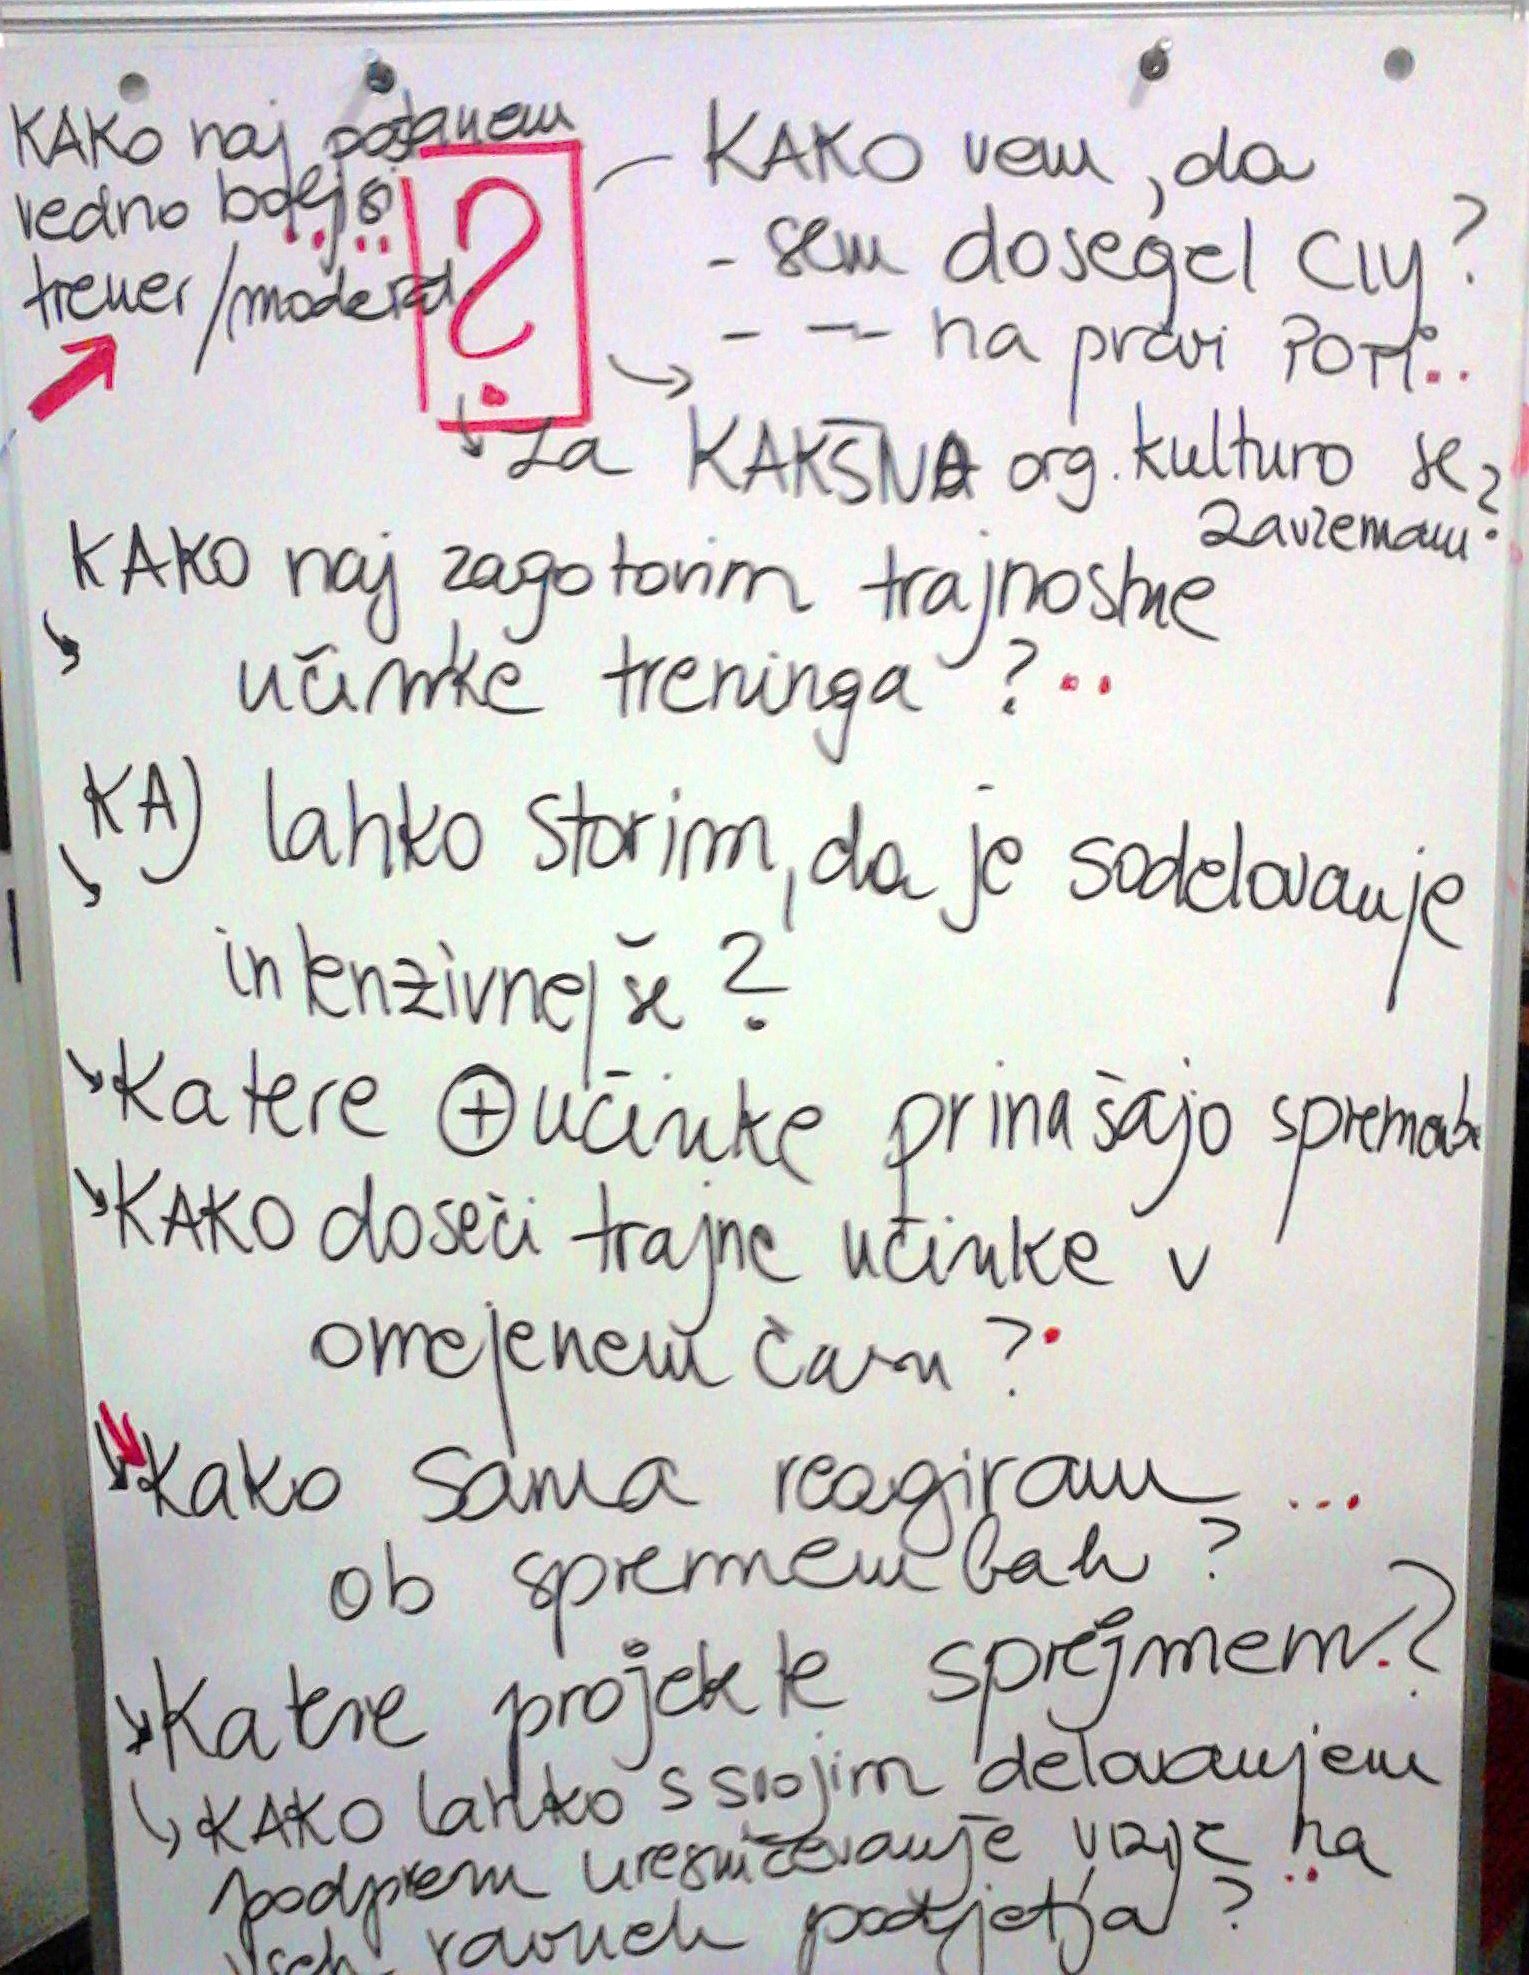 KAKO naj postanem
vedno boljši
trener/moderator
?
KAKO vem, da
- sem dosegel CILJ?
- -"- na pravi POTI..
Za KAKŠNO org. kulturo se
zavzemam?
KAKO naj zagotovim trajnostne
učinke treninga?..
KAJ lahko storim, da je sodelovanje
intenzivnejše?
Katere + učinke prinašajo spremembe
KAKO doseči trajne učinke v
omejenem času?
Kako sama reagiram ...
ob spremembah?
Katere projekte sprejmem?
KAKO lahko s svojim delovanjem
podprem uresničevanje vizije na
vseh ravneh podjetja?